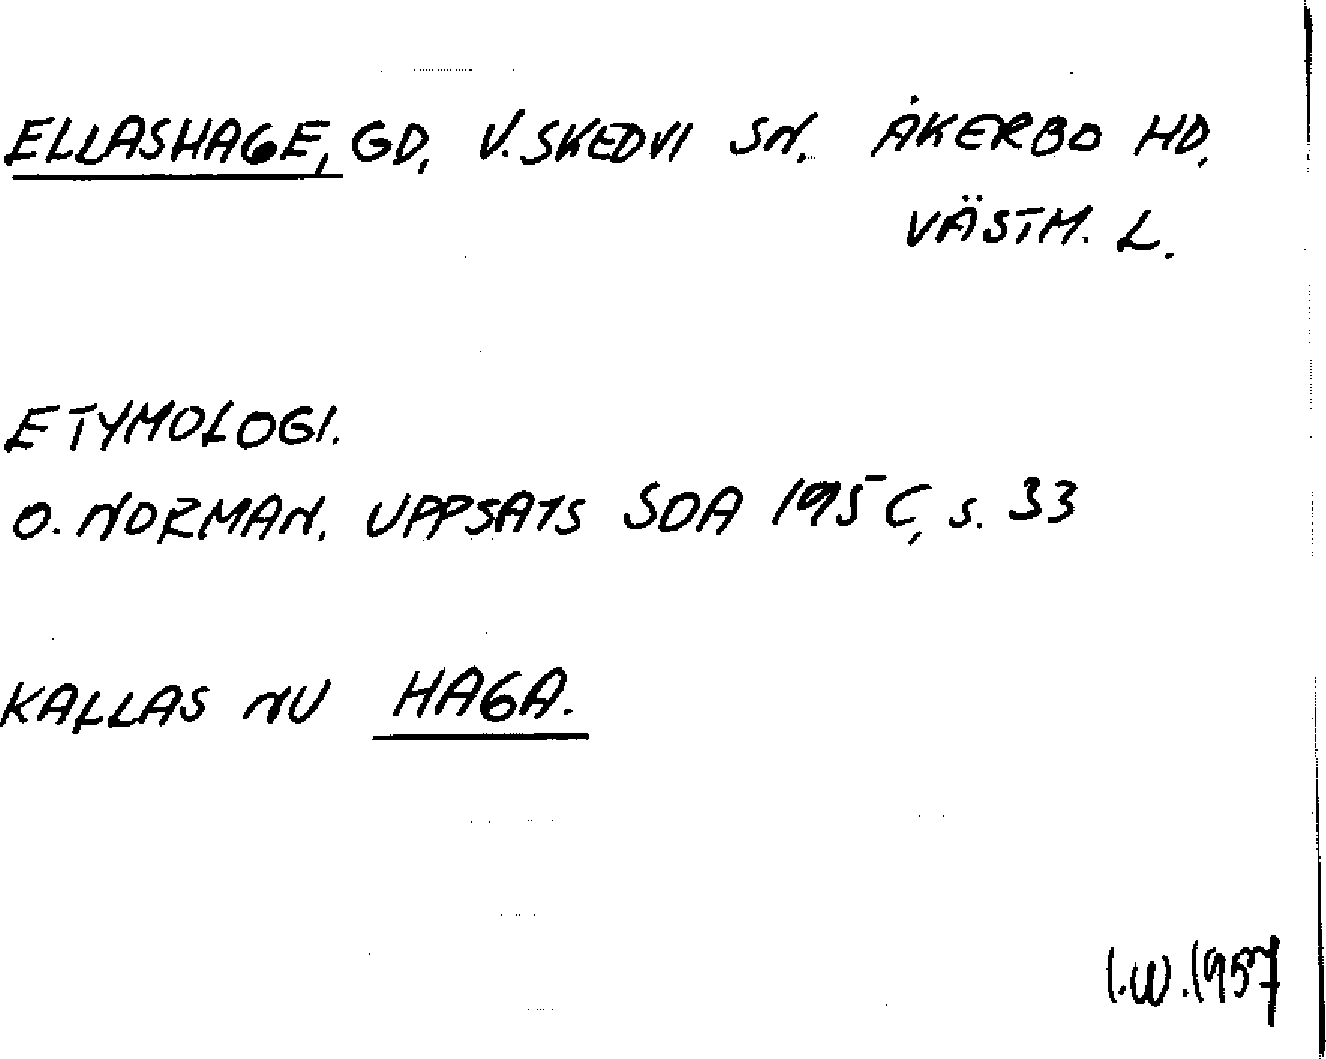 ELLASHAGE, GD, V. SKEDVI SN. ÅKERBO HD,
VÄSTM. L.
ETYMOLOGI.
O. NORMAN. UPPSATS SOA 195 C, s. 33
KALLAS NU HAGA.
I.W. 1957